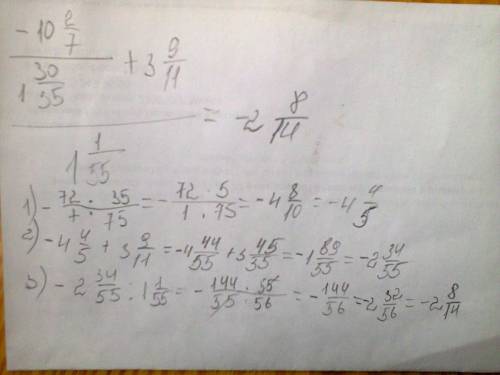 -10 2/7
1 30/35 + 3 9/11
1 1/55 = -2 8/14
1) - 72 · 35 / 7 · 75 = - 72 · 5 / 1 · 75 = -4 8/10 = -4 4/5
2) -4 4/5 + 3 9/11 = -4 44/55 + 3 45/55 = -1 89/55 = -2 34/55
3) -2 34/55 : 1 1/55 = - 144 · 55 / 55 · 56 = - 144/56 = -2 32/56 = -2 8/14